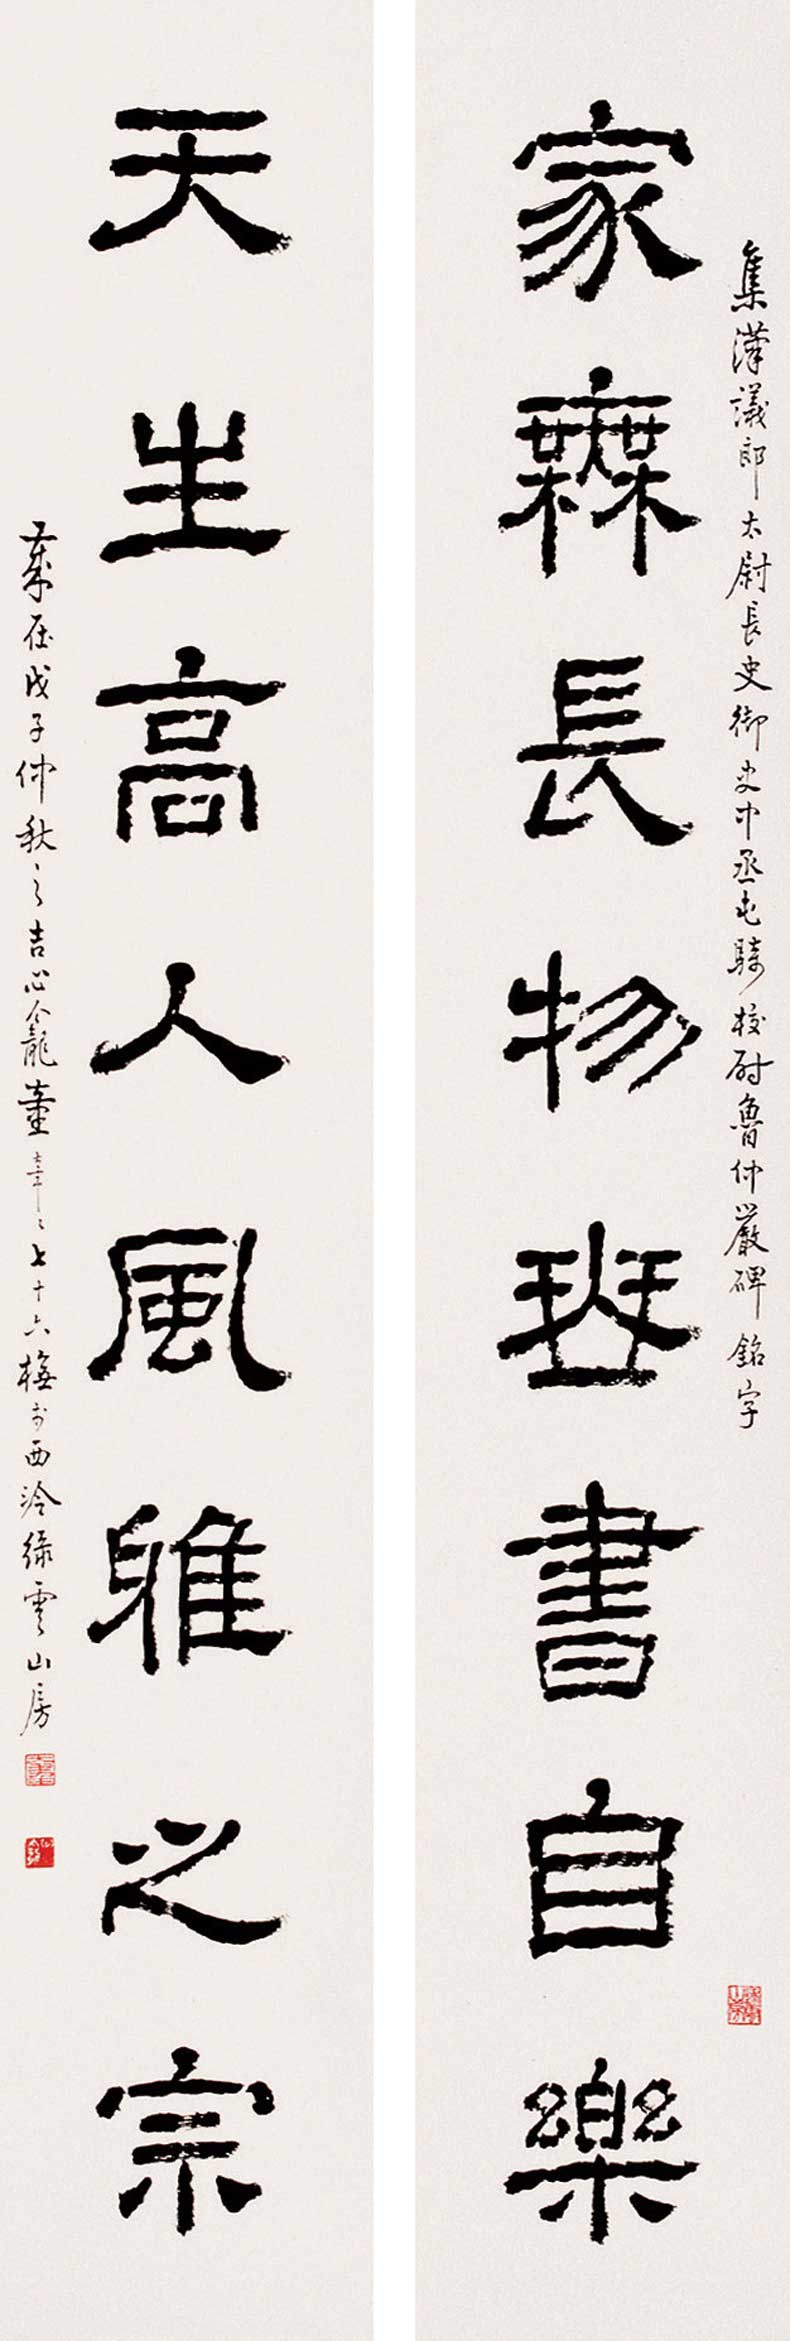 集漢議郎太尉長史御史中丞屯騎校尉魯仲嚴碑銘字
家無長物班書自樂
天生高人風雅之宗
歲在戊子仲秋之吉心龕童年七十六梅書於西泠綠雲山房